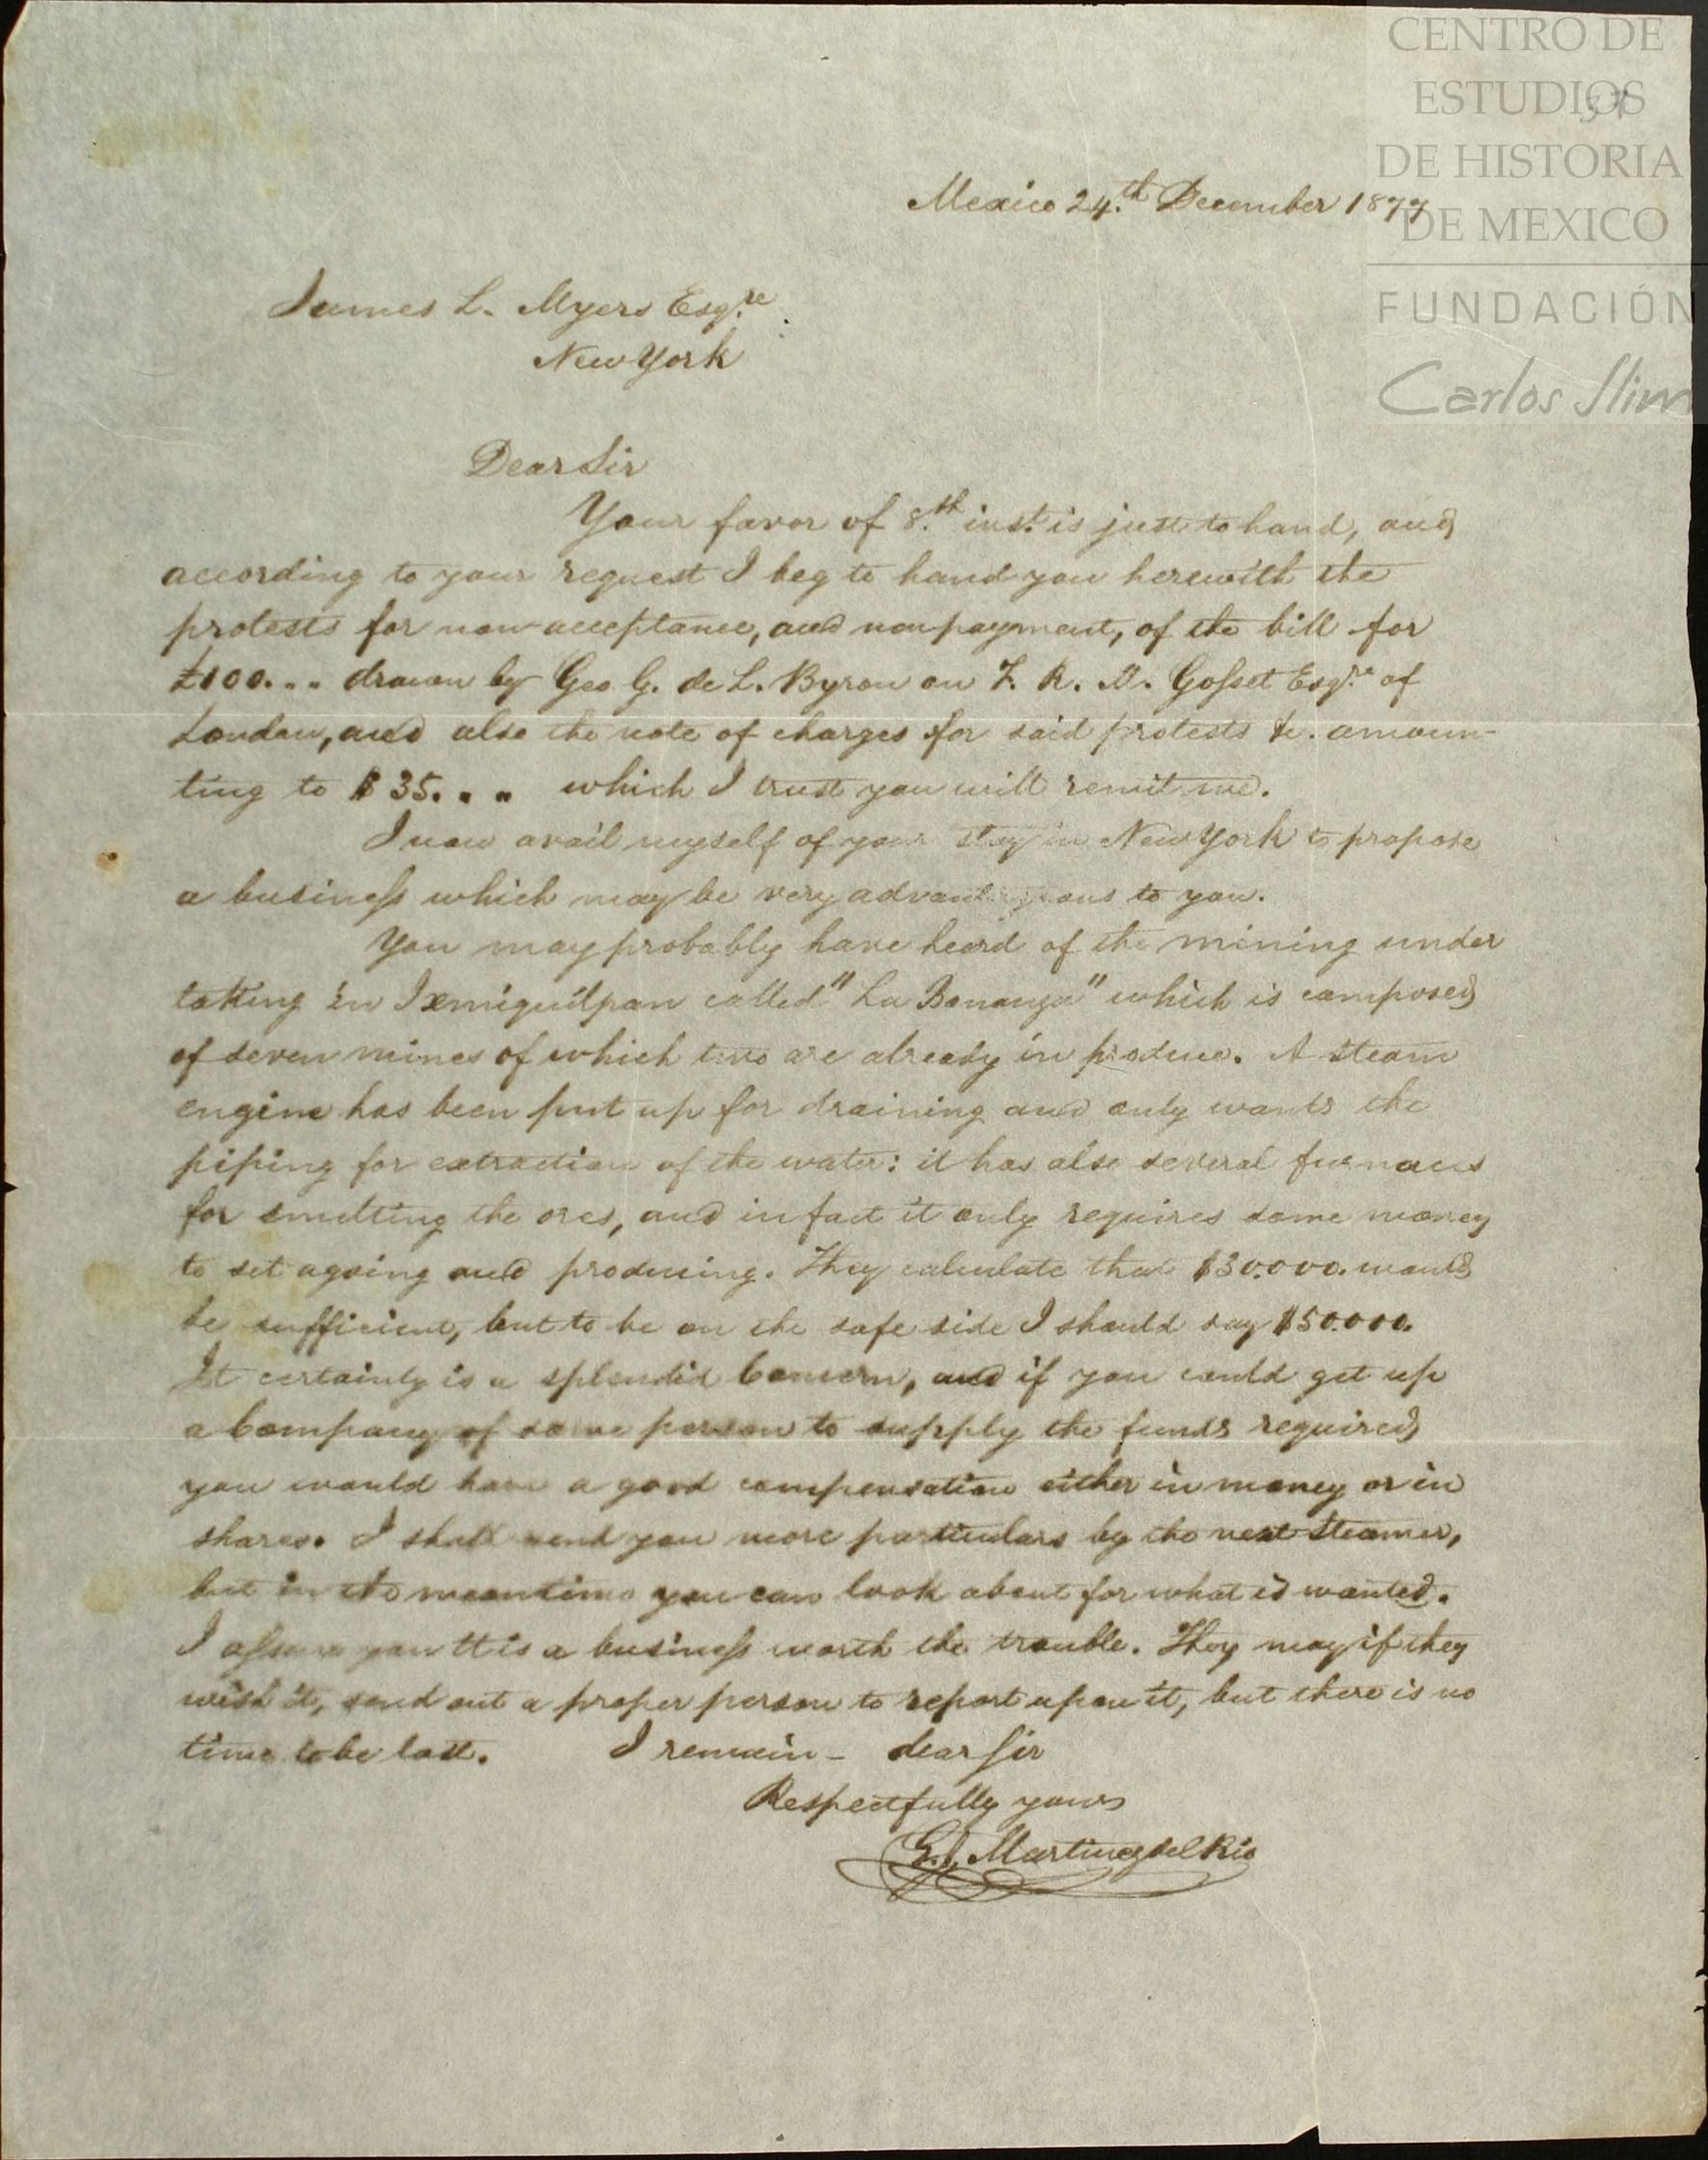 CENTRO DE
ESTUDIOS
DE HISTORIA
DE MEXICO
FUNDACIÓN
Carlos Slim
37
Mexico 24.th December 1877
James L. Myers Esq.re
New York
Dear Sir
Your favor of 8.th inst. is just to hand, and
according to your request I beg to hand you herewith the
protests for non-acceptance, and non payment, of the bill for
£100... drawn by Geo. G. de L. Byron on F. R. M. Gosset Esq.re of
London, and also the note of charges for said protests &c. amoun-
ting to $35... which I trust you will remit me.
I now avail myself of your stay in New York to propose
a business which may be very advantageous to you.
You may probably have heard of the mining under
taking in Ixmiquilpan called "La Bonanza" which is composed
of seven mines of which two are already in produce. A steam
engine has been put up for draining and only wants the
piping for extraction of the water: it has also several furnaces
for smelting the ores, and in fact it only requires some money
to set agoing and producing. They calculate that $30.000. would
be sufficient, but to be on the safe side I should say $50.000.
It certainly is a splendid Concern, and if you could get up
a Company of some person to supply the funds required
you would have a good compensation either in money or in
shares. I shall send you more particulars by the next Steamer,
but in the meantime you can look about for what is wanted.
I assure you It is a business worth the trouble. They may if they
wish it, send out a proper person to report upon it, but there is no
time to be lost. I remain - dear Sir
Respectfully yours
G. Martinez del Rio